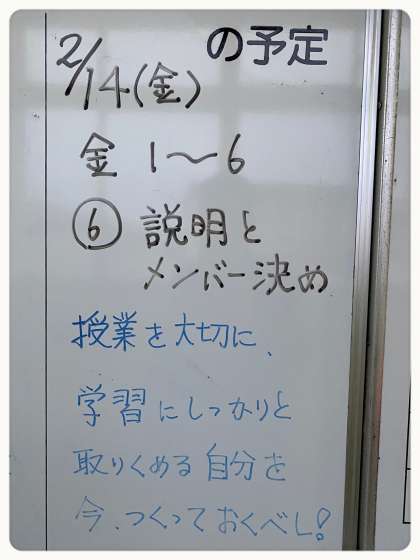 の予定
2/14(金)
金 1〜6
⑥ 説明と
メンバー決め
授業を大切に、
学習にしっかりと
取りくめる自分を
今、つくっておくべし!